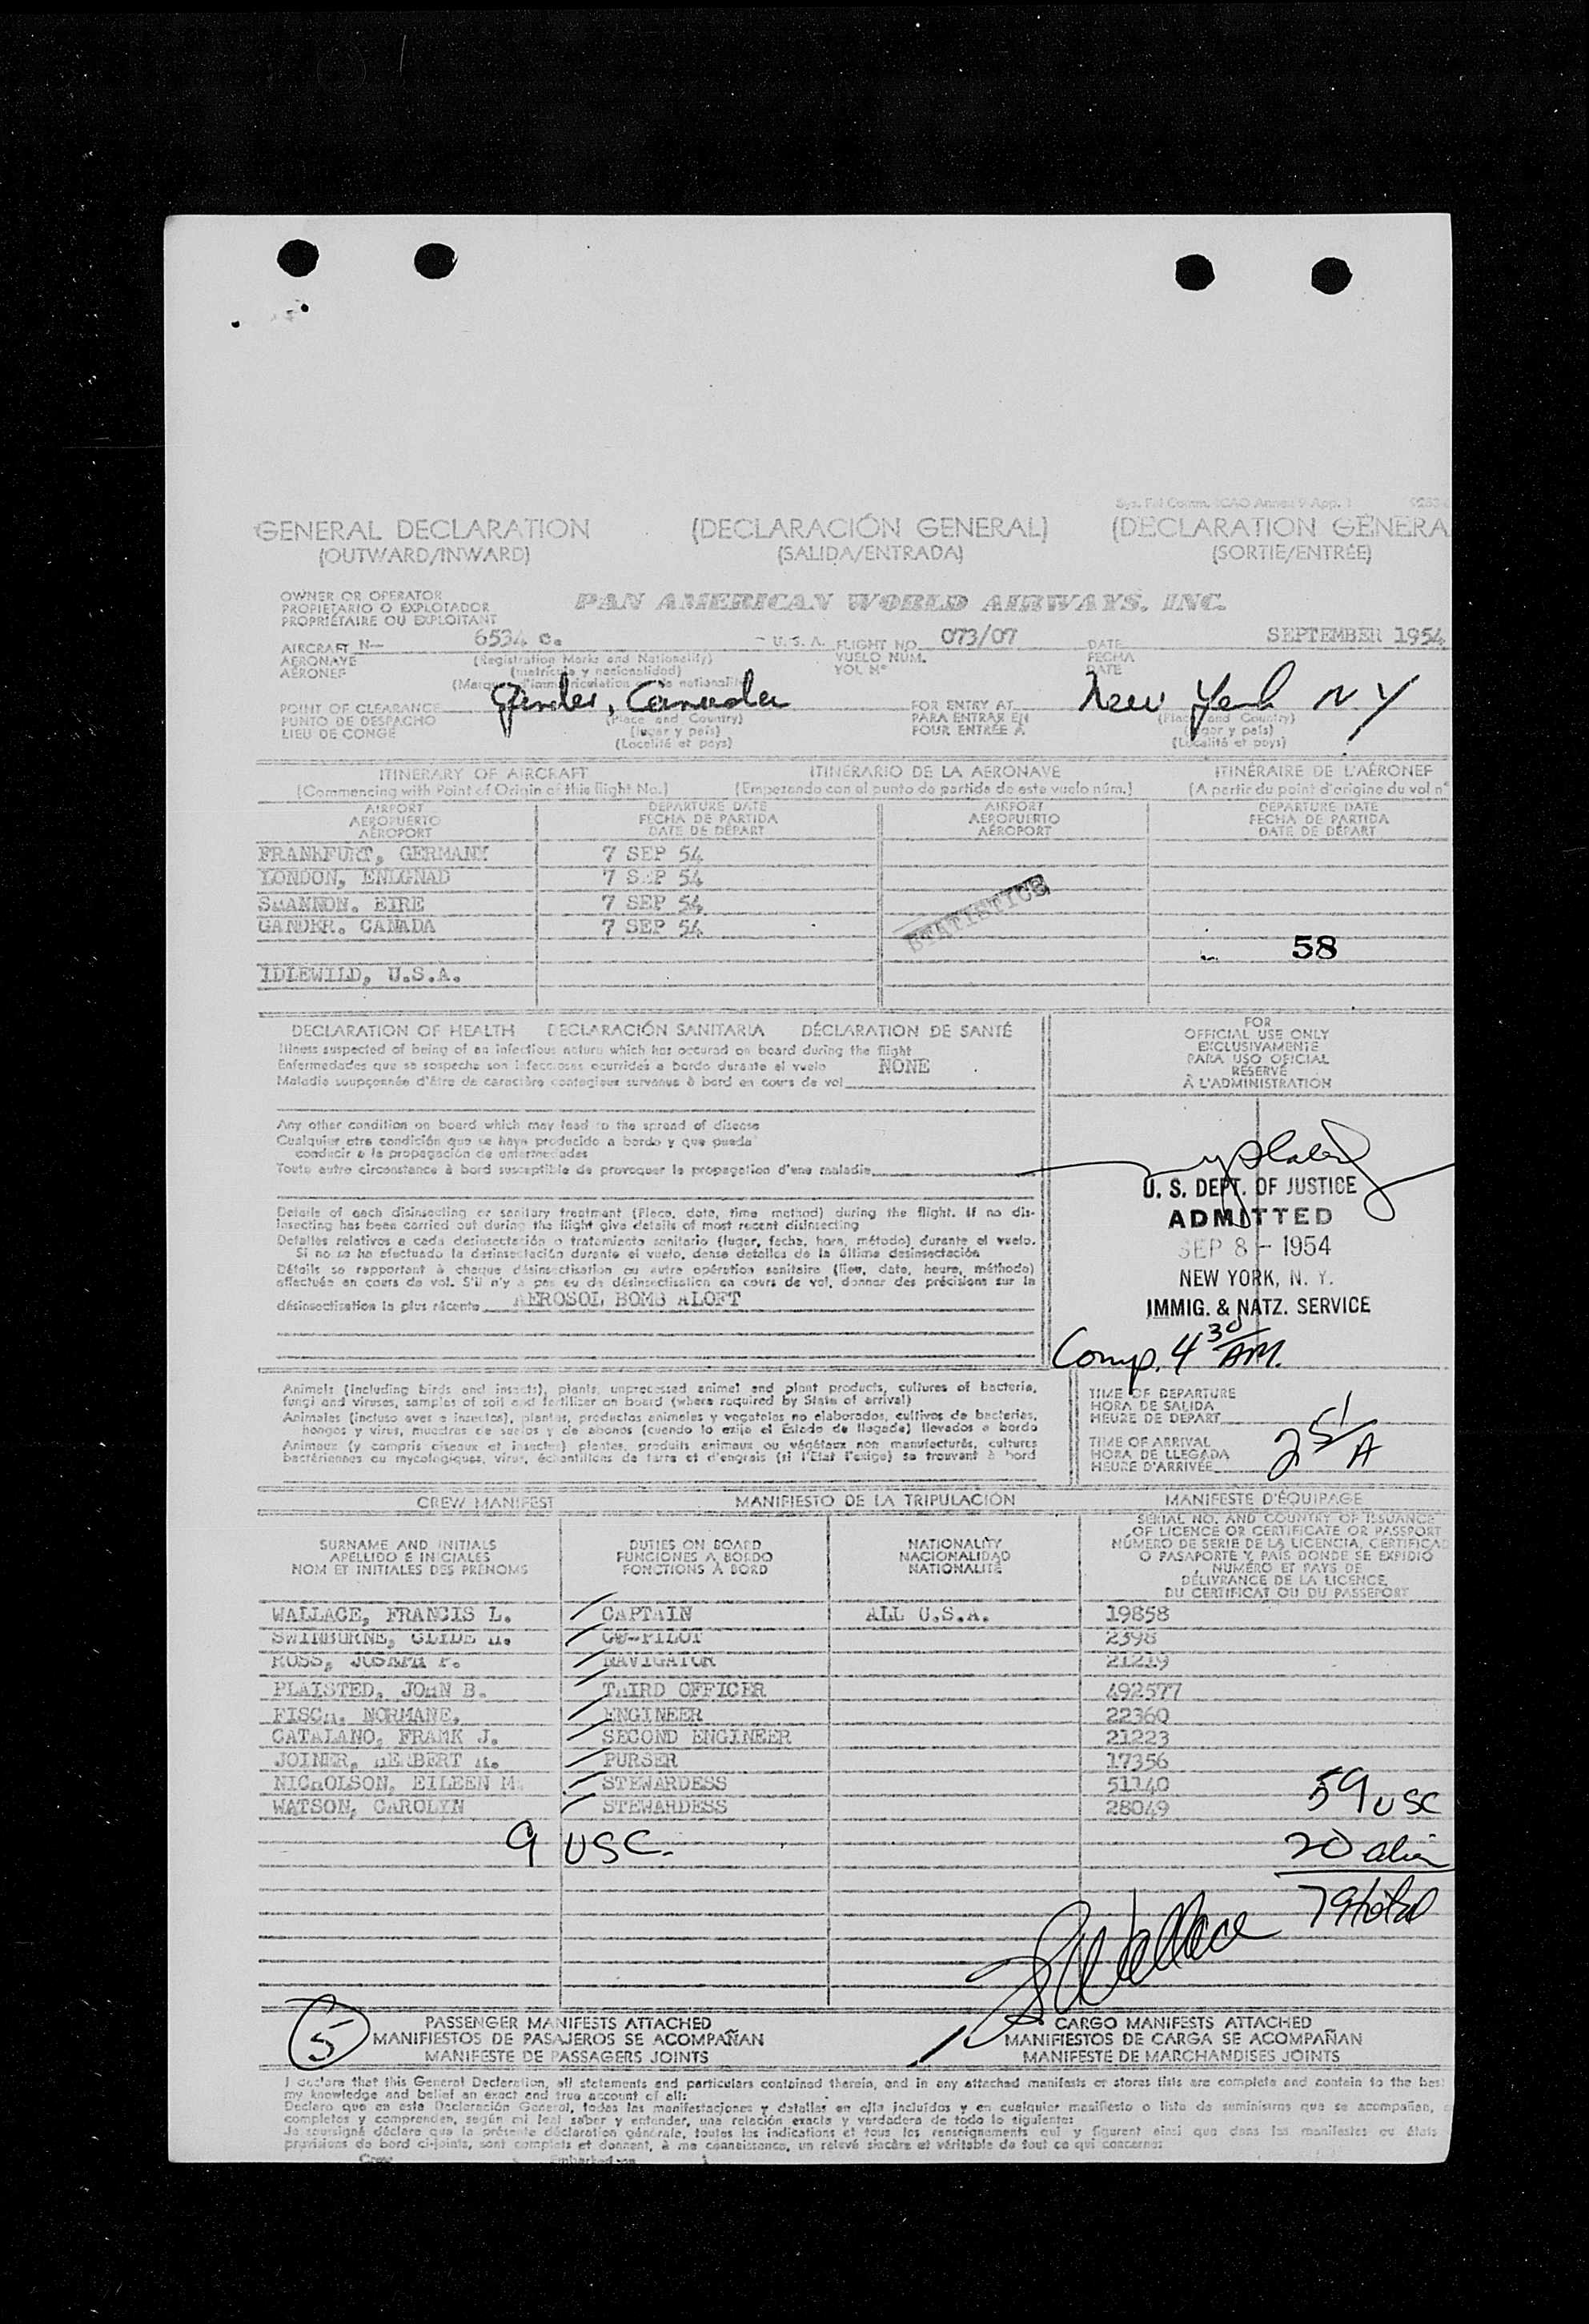 Sys. Fal Comm. ICAO Annex 9 App. 1
GENERAL DECLARATION (DECLARACIÓN GENERAL) (DÉCLARATION GÉNÉRA
(OUTWARD/INWARD) (SALIDA/ENTRADA) (SORTIE/ENTRÉE)
OWNER OR OPERATOR
PROPIETARIO O EXPLOTADOR
PROPRIÉTAIRE OU EXPLOITANT
PAN AMERICAN WORLD AIRWAYS, INC.
AIRCRAFT N— 6534 C. - U. S. A. FLIGHT NO. 073/07 DATE SEPTEMBER 1954
AERONAVE (Registration Marks and Nationality) VUELO NÚM. FECHA
AÉRONEF (matrícula y nacionalidad) VOL Nº DATE
(Marques d'immatriculation et de nationalité)
POINT OF CLEARANCE Gander, Canada FOR ENTRY AT New York N.Y
PUNTO DE DESPACHO (Place and Country) PARA ENTRAR EN (Place and Country)
LIEU DE CONGÉ (lugar y país) POUR ENTRÉE À (lugar y país)
(Localité et pays) (Localité et pays)
ITINERARY OF AIRCRAFT ITINERARIO DE LA AERONAVE ITINÉRAIRE DE L'AÉRONEF
(Commencing with Point of Origin of this flight No.) (Empezando con el punto de partida de este vuelo núm.) (A partir du point d'origine du vol nº
AIRPORT DEPARTURE DATE AIRPORT DEPARTURE DATE
AEROPUERTO FECHA DE PARTIDA AEROPUERTO FECHA DE PARTIDA
AÉROPORT DATE DE DÉPART AÉROPORT DATE DE DÉPART
FRANKFURT, GERMANY 7 SEP 54
LONDON, ENLGNAD 7 SEP 54
SHANNON. EIRE 7 SEP 54
GANDER. CANADA 7 SEP 54
STATISTICS
58
IDLEWILD, U.S.A.
DECLARATION OF HEALTH DECLARACIÓN SANITARIA DÉCLARATION DE SANTÉ
Illness suspected of being of an infectious nature which has occurred on board during the flight
Enfermedades que se sospecha son infecciosas ocurridas a bordo durante el vuelo NONE
Maladie soupçonnée d'être de caractère contagieux survenue à bord en cours de vol
Any other condition on board which may lead to the spread of disease
Cualquier otra condición que se haya producido a bordo y que pueda
conducir a la propagación de enfermedades
Toute autre circonstance à bord susceptible de provoquer la propagation d'une maladie
Details of each disinsecting or sanitary treatment (Place, date, time method) during the flight. If no dis-
insecting has been carried out during the flight give details of most recent disinsecting
Detalles relativos a cada desinsectación o tratamiento sanitario (lugar, fecha, hora, método) durante el vuelo.
Si no se ha efectuado la desinsectación durante el vuelo, dense detalles de la última desinsectación
Détails se rapportant à chaque désinsectisation ou autre opération sanitaire (lieu, date, heure, méthode)
effectuée en cours de vol. S'il n'y a pas eu de désinsectisation en cours de vol, donner des précisions sur la
désinsectisation la plus récente AEROSOL BOMB ALOFT
FOR
OFFICIAL USE ONLY
EXCLUSIVAMENTE
PARA USO OFICIAL
RÉSERVÉ
À L'ADMINISTRATION
U. S. DEPT. OF JUSTICE
ADMITTED
SEP 8 - 1954
NEW YORK, N. Y.
IMMIG. & NATZ. SERVICE
Comp. 4 30 AM.
Animals (including birds and insects), plants, unprocessed animal and plant products, cultures of bacteria,
fungi and viruses, samples of soil and fertilizer on board (where required by State of arrival)
Animales (incluso aves e insectos), plantas, productos animales y vegetales no elaborados, cultivos de bacterias,
hongos y virus, muestras de suelos y de abonos (cuando lo exija el Estado de llegada) llevados a bordo
Animaux (y compris oiseaux et insectes) plantes, produits animaux ou végétaux non manufacturés, cultures
bactériennes ou mycologiques, virus, échantillons de terre et d'engrais (si l'État l'exige) se trouvant à bord
TIME OF DEPARTURE
HORA DE SALIDA
HEURE DE DÉPART
TIME OF ARRIVAL
HORA DE LLEGADA
HEURE D'ARRIVÉE
2 51 A
CREW MANIFEST MANIFIESTO DE LA TRIPULACIÓN MANIFESTE D'ÉQUIPAGE
SURNAME AND INITIALS
APELLIDO E INICIALES
NOM ET INITIALES DES PRÉNOMS
DUTIES ON BOARD
FUNCIONES A BORDO
FONCTIONS À BORD
NATIONALITY
NACIONALIDAD
NATIONALITÉ
SERIAL NO. AND COUNTRY OF ISSUANCE
OF LICENCE OR CERTIFICATE OR PASSPORT
NÚMERO DE SERIE DE LA LICENCIA, CERTIFICAD
O PASAPORTE Y PAÍS DONDE SE EXPIDIÓ
NUMÉRO ET PAYS DE
DÉLIVRANCE DE LA LICENCE,
DU CERTIFICAT OU DU PASSEPORT
WALLACE, FRANCIS L. CAPTAIN ALL U.S.A. 19858
SWINBURNE, CLIDE H. CO-PILOT 2398
ROSS, JOSEPH P. NAVIGATOR 21219
PLAISTED, JOHN B. THIRD OFFICER 492577
FISCH. NORMANE. ENGINEER 22360
CATALANO, FRANK J. SECOND ENGINEER 21223
JOINER, HERBERT H. PURSER 17356
NICHOLSON. EILEEN M. STEWARDESS 51140
WATSON, CAROLYN STEWARDESS 28049
59 USC
9 USC.
20 alien
79 total
F L Wallace
5
PASSENGER MANIFESTS ATTACHED CARGO MANIFESTS ATTACHED
MANIFIESTOS DE PASAJEROS SE ACOMPAÑAN MANIFIESTOS DE CARGA SE ACOMPAÑAN
MANIFESTE DE PASSAGERS JOINTS MANIFESTE DE MARCHANDISES JOINTS
I declare that this General Declaration, all statements and particulars contained therein, and in any attached manifests or stores lists are complete and contain to the bes
my knowledge and belief an exact and true account of all:
Declaro que en esta Declaración General, todas las manifestaciones y detalles en ella incluídos y en cualquier manifiesto o lista de suministros que se acompañan,
completos y comprenden, según mi leal saber y entender, una relación exacta y verdadera de todo lo siguiente:
Je soussigné déclare que la présente déclaration générale, toutes les indications et tous les renseignements qui y figurent ainsi que dans les manifestes ou états
provisions de bord ci-joints, sont complets et donnent, à ma connaissance, un relevé sincère et véritable de tout ce qui concerne:
Crew Embarked on